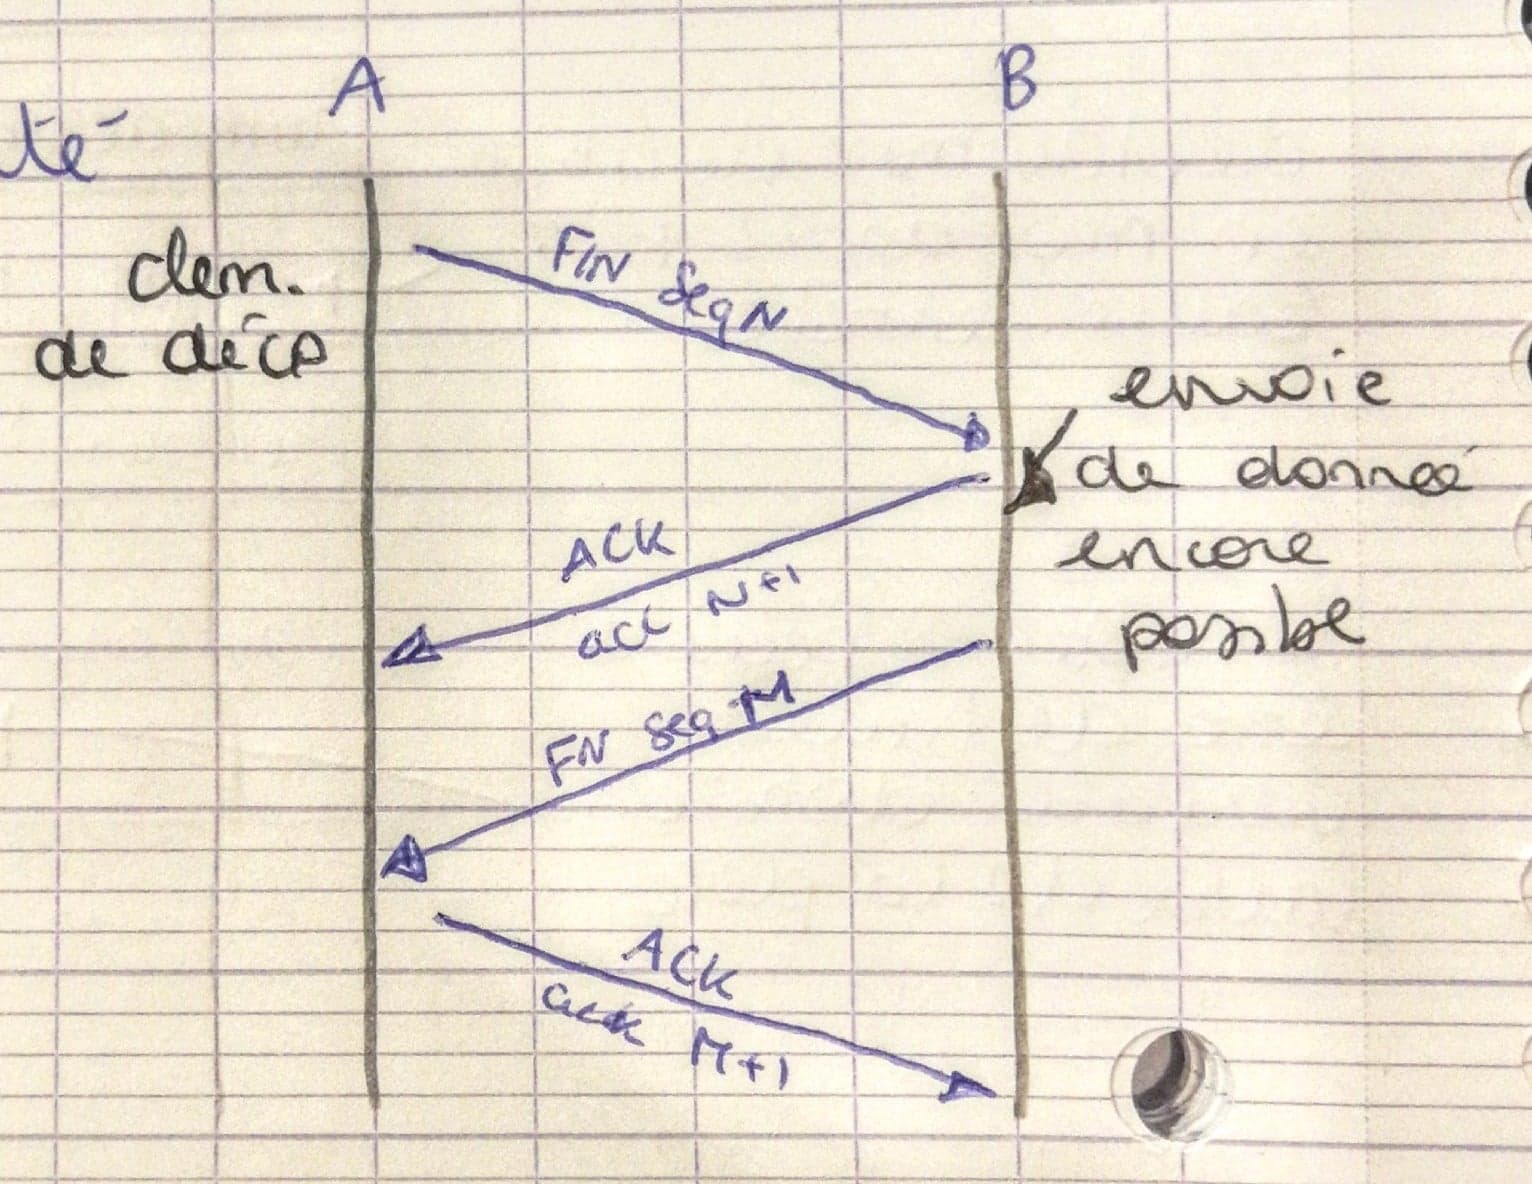 A
B
té
dem.
de déco
FIN Seq N
envoie
de donneé
encore
possible
ACK
ack N+1
FIN Seq M
ACK
ack M+1